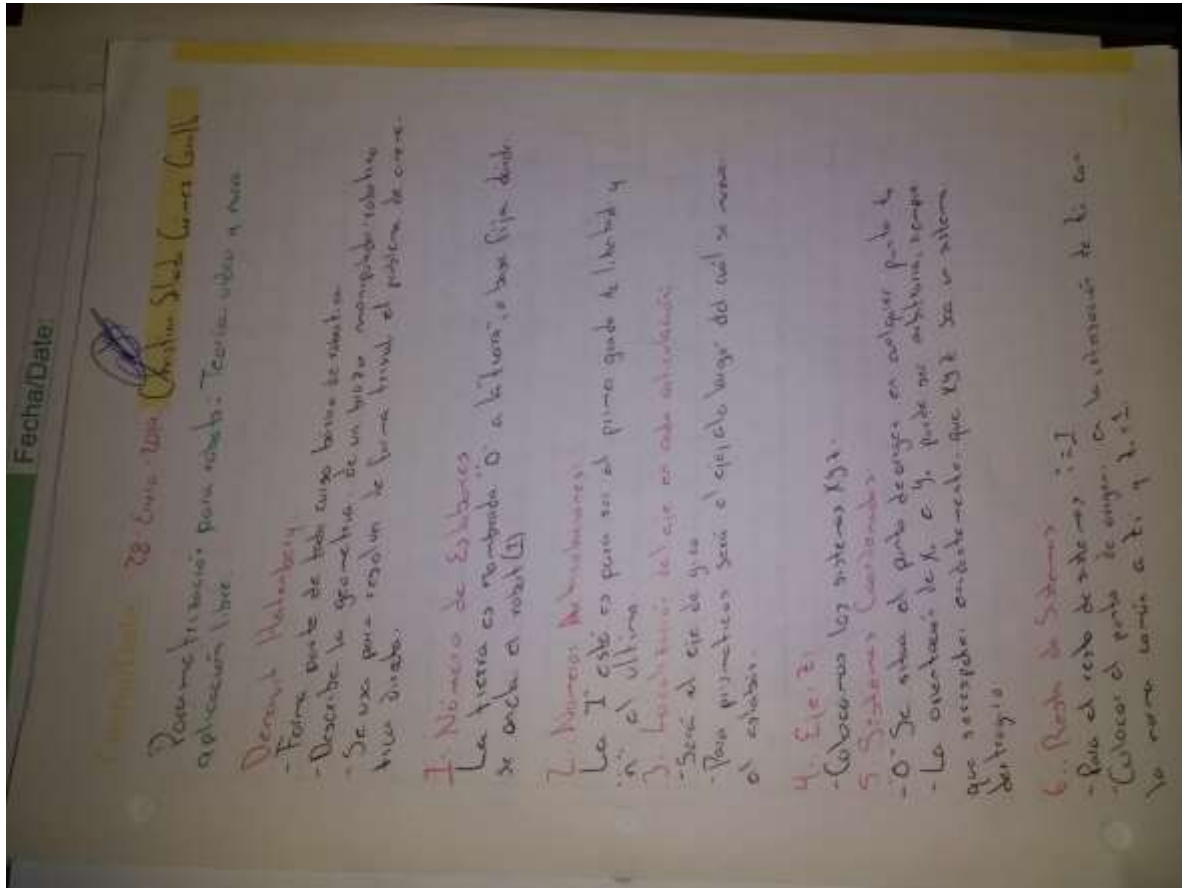 Fecha/Date:
28 Enero 2014
Parametrización para robots. Teoría, video y
aplicación libre
Denavit Hatenberg
- Forma parte de todo curso básico de robótica
- Describe la geometría de un brazo manipulador robótico
- Se usa para resolver de forma trivial el problema de cinemá-
tica directa.
1. Número de Eslabones
La tierra es nombrada "0" a la tierra, o base fija donde
se ancla el robot (1)
2. Numeros Articulaciones:
La "1" este es para ser el primer grado de libertad y
"n" el último.
3. Localización del eje en cada articulación
- Será el eje de giro
- Para prismáticos será el eje, a lo largo del cuál se mueve
el eslabón.
4. Eje Zi
- Colocamos los sistemas XYZ.
5. Sistemas Coordenados
- 0 Se sitúa el punto de origen en cualquier punto
- La orientación de X0 a Y0 puede ser arbitraria, siempre
que se respete que XYZ sea un sistema
6. Resto de Sistemas
- Para el resto de sistemas i=1
- Colocar el punto de origen en la intersección de
la norma común a Zi y